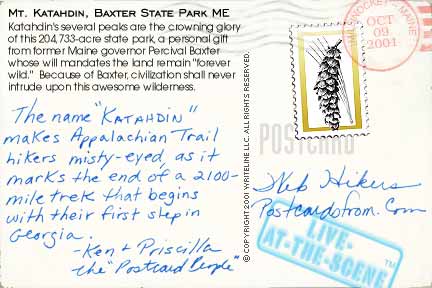 Mt. Katahdin, Baxter State Park ME
Katahdin's several peaks are the crowning glory
of this 204,733-acre state park, a personal gift
from former Maine governor Percival Baxter
whose will mandates the land remain "forever
wild." Because of Baxter, civilization shall never
intrude upon this awesome wilderness.
The name "KATAHDIN"
makes Appalachian Trail
hikers misty-eyed, as it
marks the end of a 2100-
mile trek that begins
with their first step in
Georgia.
-Ken + Priscilla
the "Postcard People"
© COPYRIGHT 2001 WRITELINE LLC. ALL RIGHTS RESERVED.
OCT
09
2001
MAINE
POSTCARD
Web Hikers
Postcardsfrom.Com
LIVE-
AT-THE-SCENE™